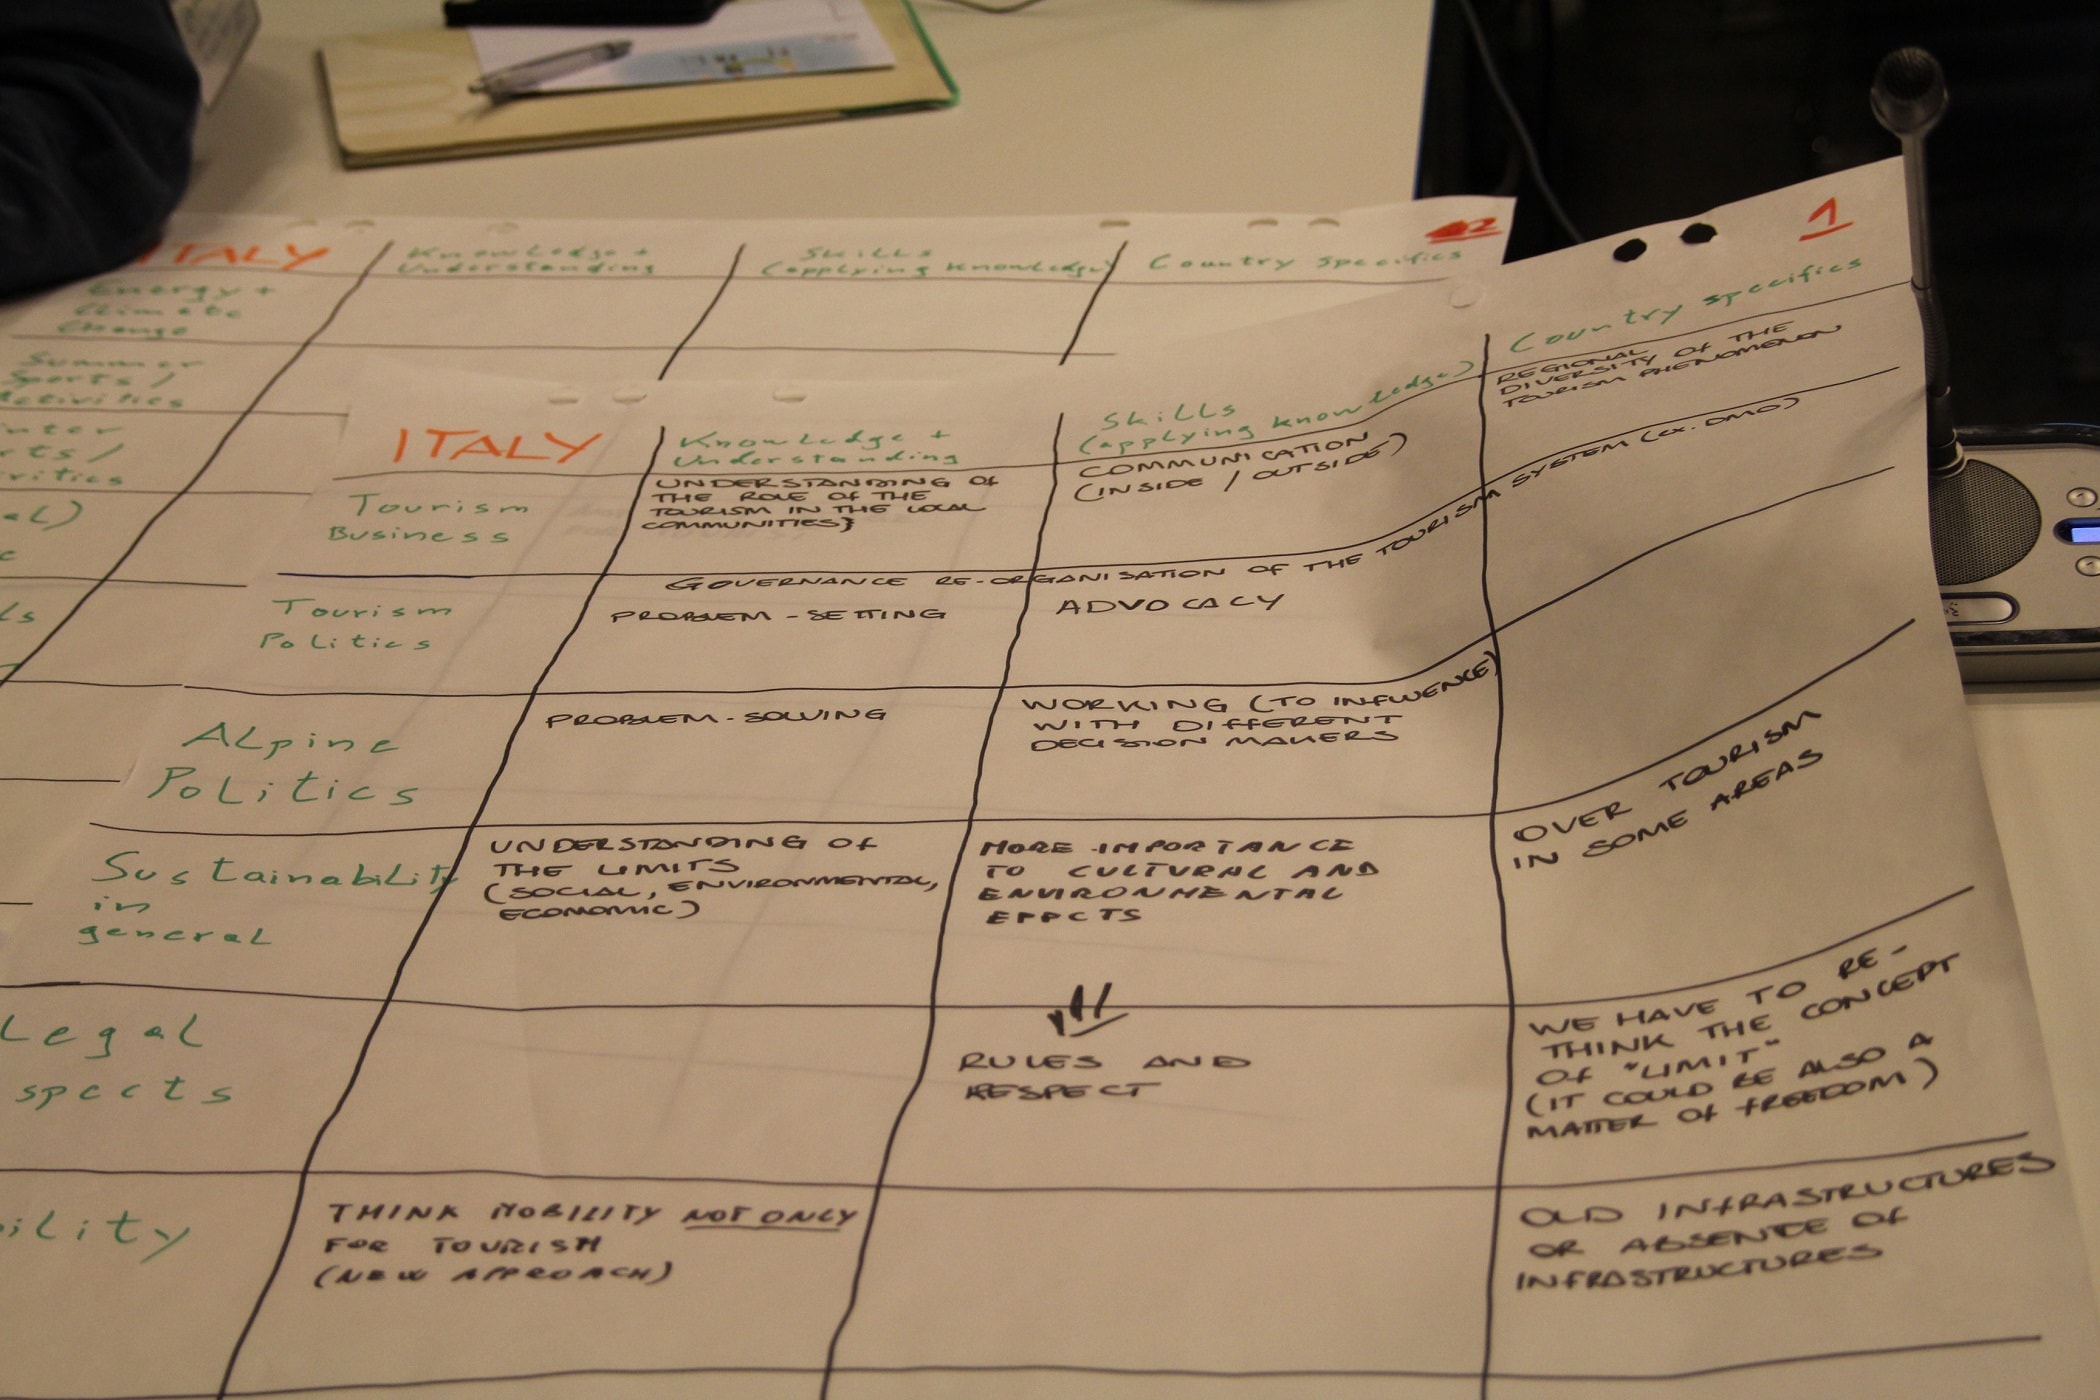 ITALY
Knowledge +
Understanding
Skills
(applying knowledge)
Country specifics
2
Energy +
Climate
Change
Summer
Sports /
Activities
1
ITALY
Knowledge +
Understanding
Skills
(applying knowledge)
Country specifics
Tourism
Business
UNDERSTANDING OF
THE ROLE OF THE
TOURISM IN THE LOCAL
COMMUNITIES}
COMMUNICATION
(INSIDE / OUTSIDE)
REGIONAL
DIVERSITY OF THE
TOURISM PHENOMENON
GOVERNANCE RE-ORGANISATION OF THE TOURISM SYSTEM (ex. DMO)
Tourism
Politics
PROBLEM-SETTING
ADVOCACY
Alpine
Politics
PROBLEM-SOLVING
WORKING (TO INFLUENCE)
WITH DIFFERENT
DECISION MAKERS
Sustainability
in
general
UNDERSTANDING OF
THE LIMITS
(SOCIAL, ENVIRONMENTAL,
ECONOMIC)
MORE IMPORTANCE
TO CULTURAL AND
ENVIRONMENTAL
EFFCTS
OVER TOURISM
IN SOME AREAS
Legal
spects
RULES AND
RESPECT
WE HAVE TO RE-
THINK THE CONCEPT
OF "LIMIT"
(IT COULD BE ALSO A
MATTER OF FREEDOM)
ility
THINK MOBILITY NOT ONLY
FOR TOURISM
(NEW APPROACH)
OLD INFRASTRUCTURES
OR ABSENCE OF
INFRASTRUCTURES